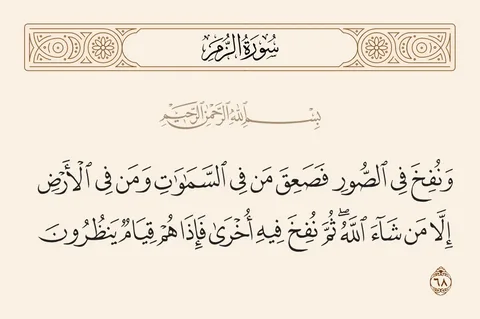 سُورَةُ الزُّمَر
بِسْمِ اللَّهِ الرَّحْمَٰنِ الرَّحِيمِ
وَنُفِخَ فِي ٱلصُّورِ فَصَعِقَ مَن فِي ٱلسَّمَٰوَٰتِ وَمَن فِي ٱلْأَرْضِ
إِلَّا مَن شَآءَ ٱللَّهُۖ ثُمَّ نُفِخَ فِيهِ أُخْرَىٰ فَإِذَا هُمْ قِيَامٌ يَنظُرُونَ
٦٨